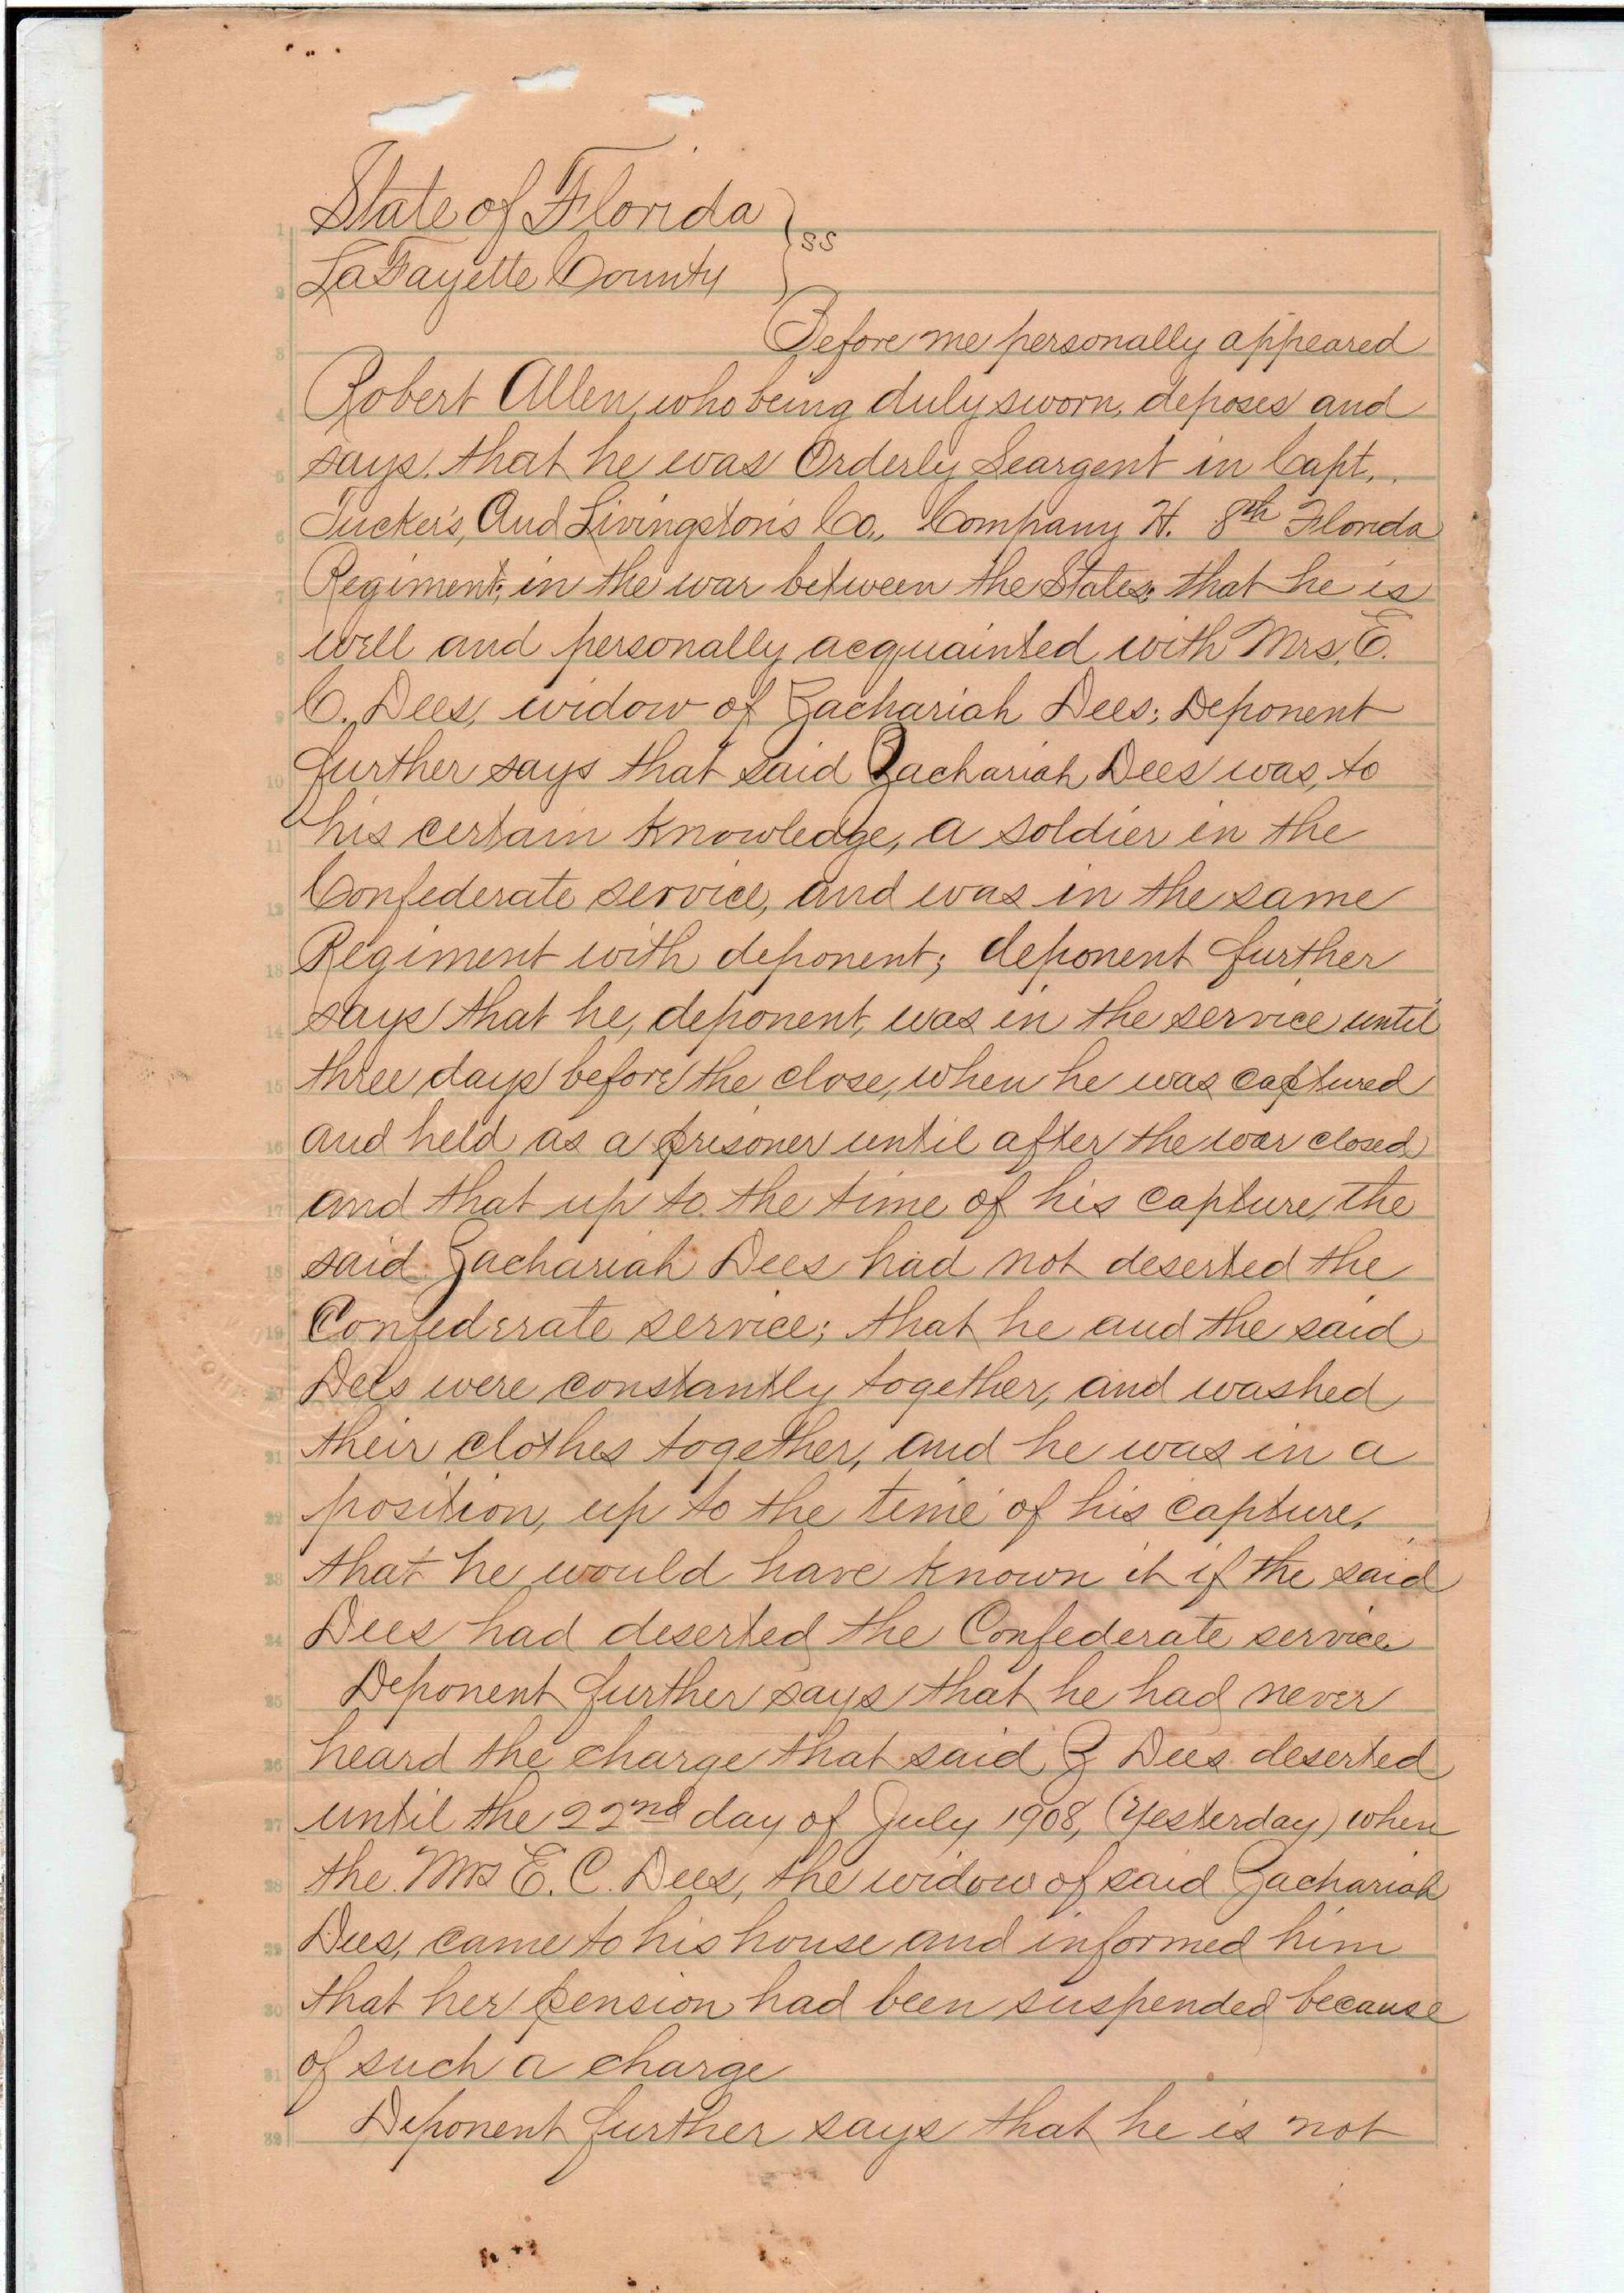 State of Florida } ss
LaFayette County
Before me personally appeared
Robert Allen, who being duly sworn, deposes and
says, that he was Orderly Seargent in Capt.
Tucker's, And Livingston's Co., Company H. 8th Florida
Regiment; in the war between the States; that he is
well and personally acquainted with Mrs. E.
C. Dees, widow of Zachariah Dees; Deponent
further says that said Zachariah Dees was, to
his certain knowledge, a soldier in the
Confederate service, and was in the same
Regiment with deponent; deponent further
says that he, deponent, was in the service until
three days before the close, when he was captured
and held as a prisoner until after the war closed
and that up to the time of his capture, the
said Zachariah Dees had not deserted the
Confederate service; that he and the said
Dees were constantly together, and washed
their clothes together, and he was in a
position, up to the time of his capture,
that he would have known it if the said
Dees had deserted the Confederate service.
Deponent further says that he had never
heard the charge that said Z Dees deserted
until the 22nd day of July 1908, (Yesterday) when
the Mrs E. C. Dees, the widow of said Zachariah
Dees, came to his house and informed him
that her pension had been suspended because
of such a charge
Deponent further says that he is not